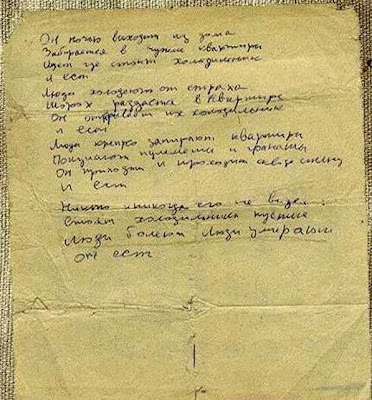 Он ночью выходит из дома
Забирается в чужие квартиры
Ищет где стоит холодильник
и ест
Люди холодеют от страха
Шорох раздается в квартире
Он открывает их холодильник
и ест
Люди крепко запирают квартиры
пулеметы и гранаты
Он приходит и проходит сквозь стену
и ест
Никто никогда его не видел
Стоят холодильники пустые
Люди болеют люди умирают
он ест